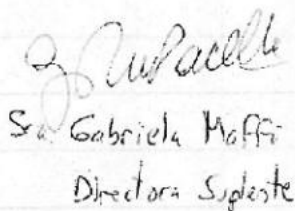 Sra Gabriela Maffi
Directora Suplente